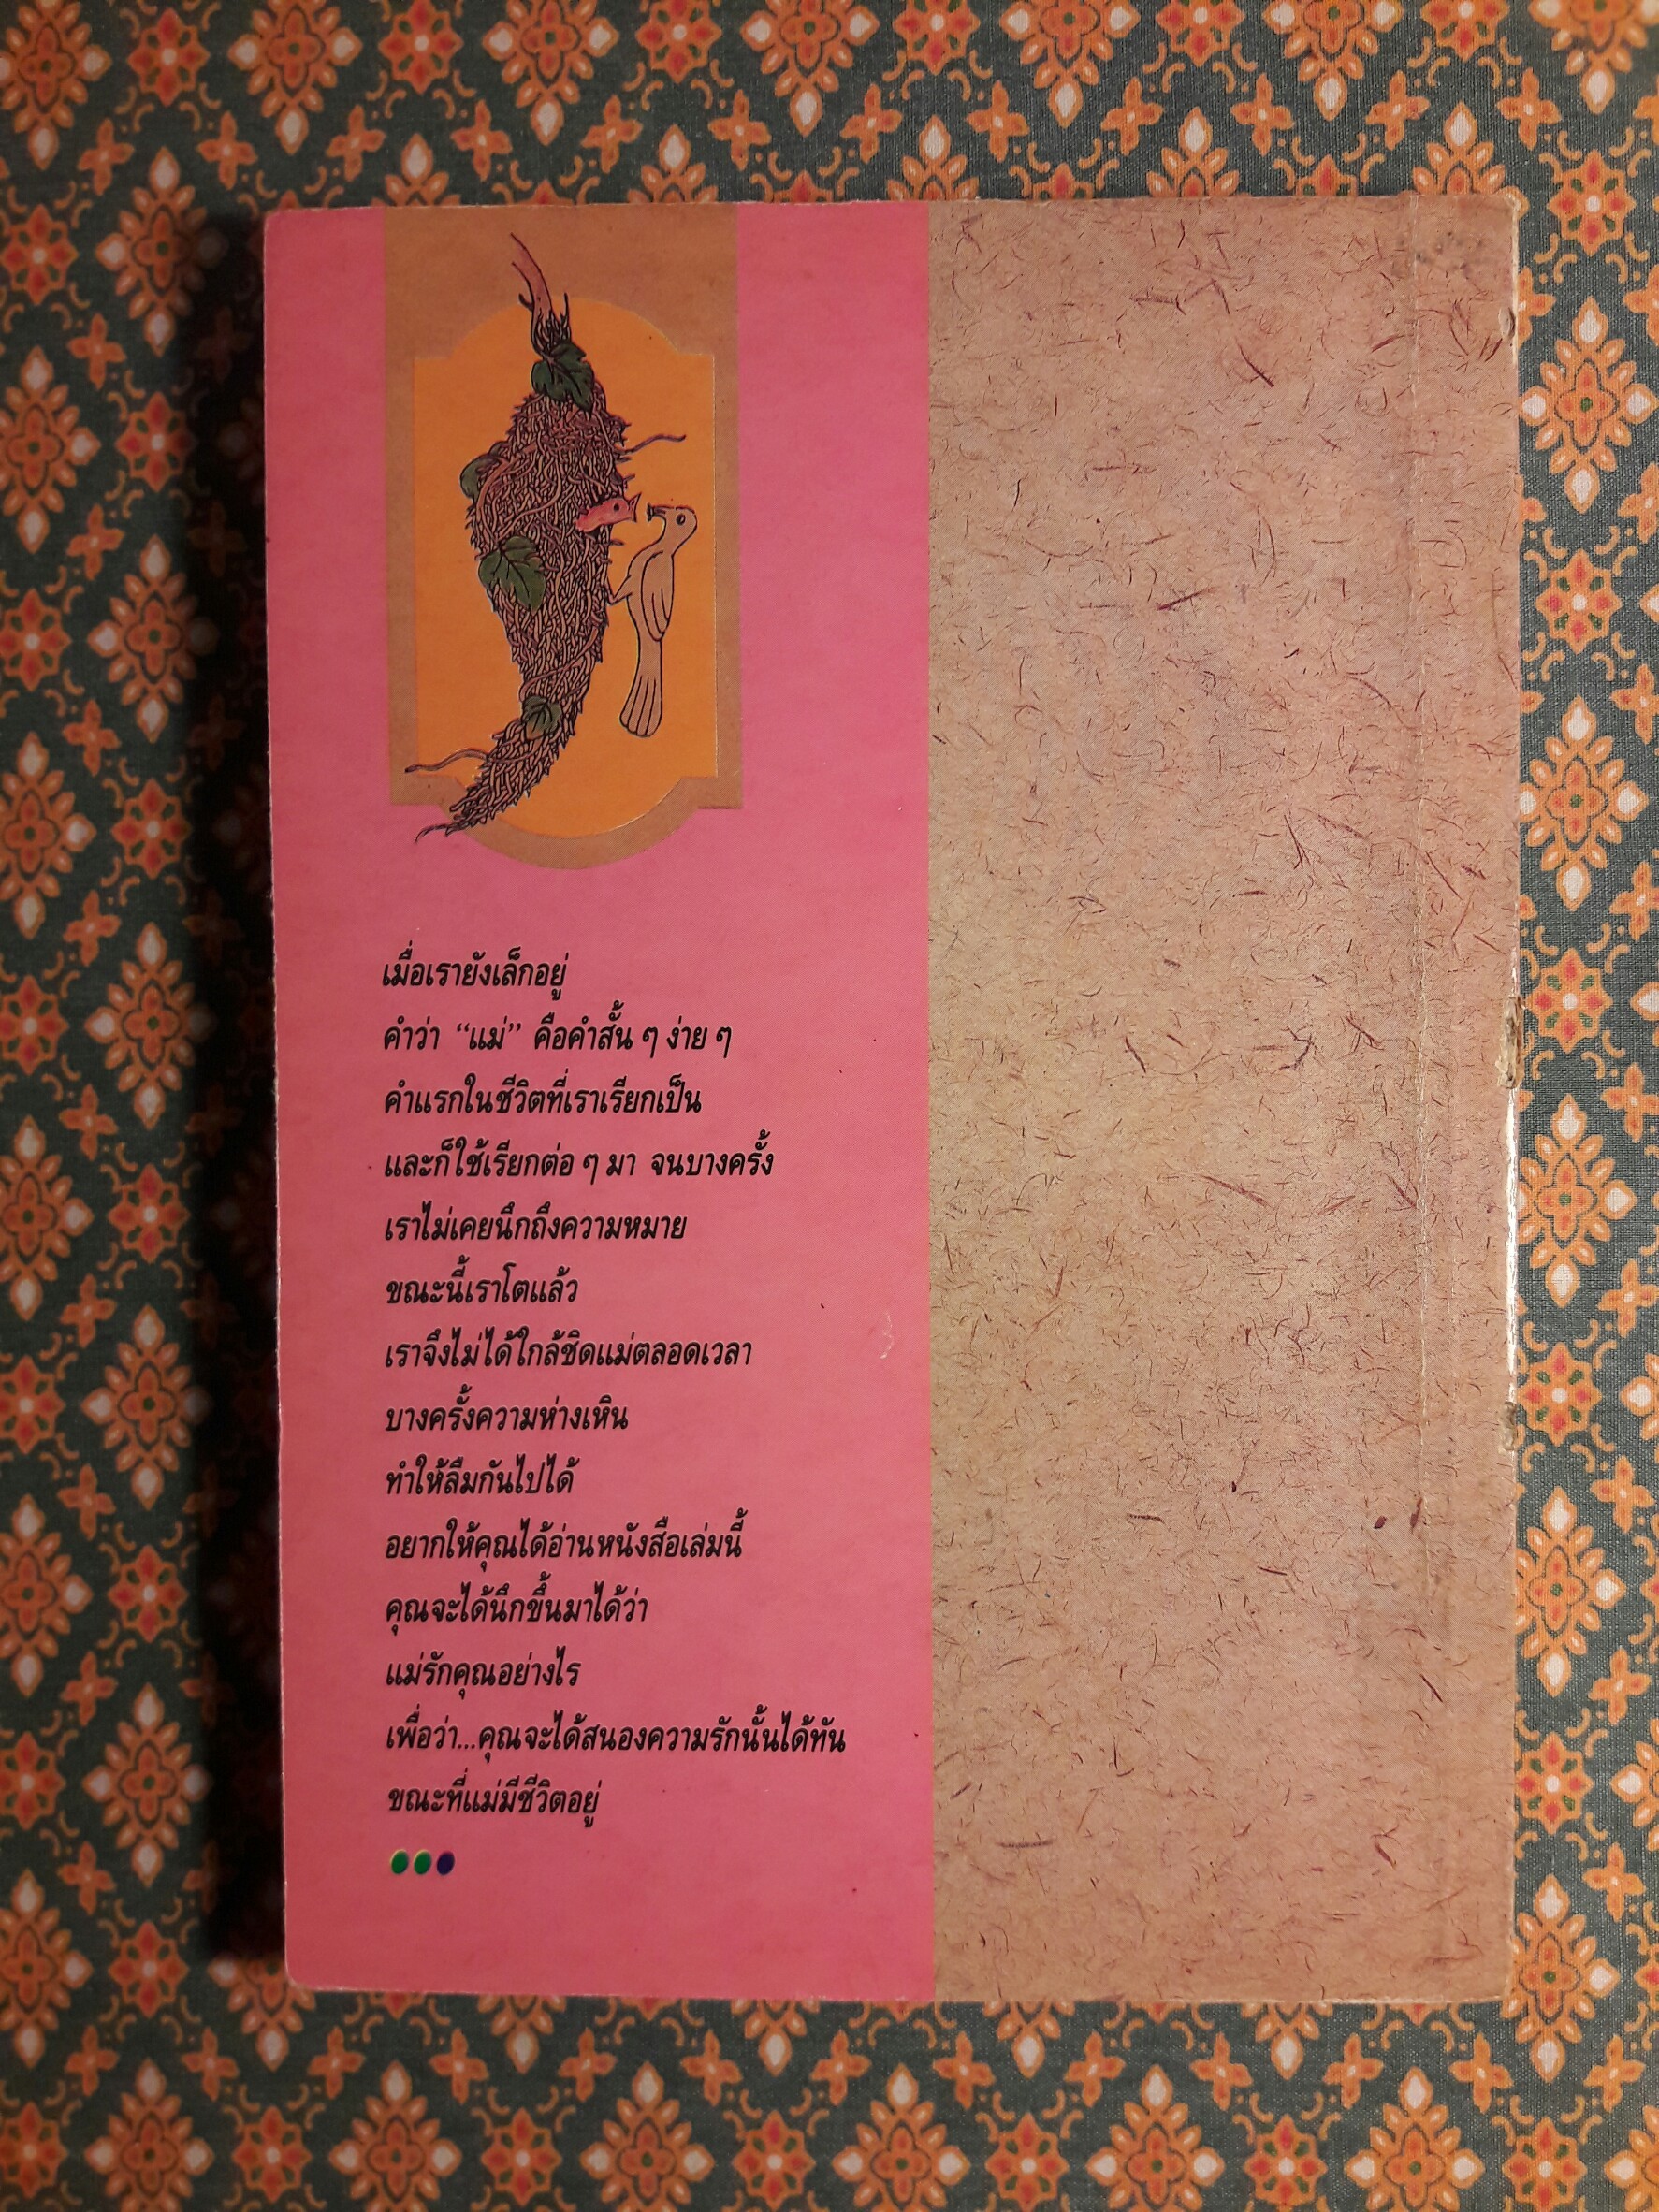 เมื่อเรายังเล็กอยู่
คำว่า “แม่” คือคำสั้น ๆ ง่าย ๆ
คำแรกในชีวิตที่เราเรียกเป็น
และก็ใช้เรียกต่อ ๆ มา จนบางครั้ง
เราไม่เคยนึกถึงความหมาย
ขณะนี้เราโตแล้ว
เราจึงไม่ได้ใกล้ชิดแม่ตลอดเวลา
บางครั้งความห่างเหิน
ทำให้ลืมกันไปได้
อยากให้คุณได้อ่านหนังสือเล่มนี้
คุณจะได้นึกขึ้นมาได้ว่า
แม่รักคุณอย่างไร
เพื่อว่า...คุณจะได้สนองความรักนั้นได้ทัน
ขณะที่แม่มีชีวิตอยู่